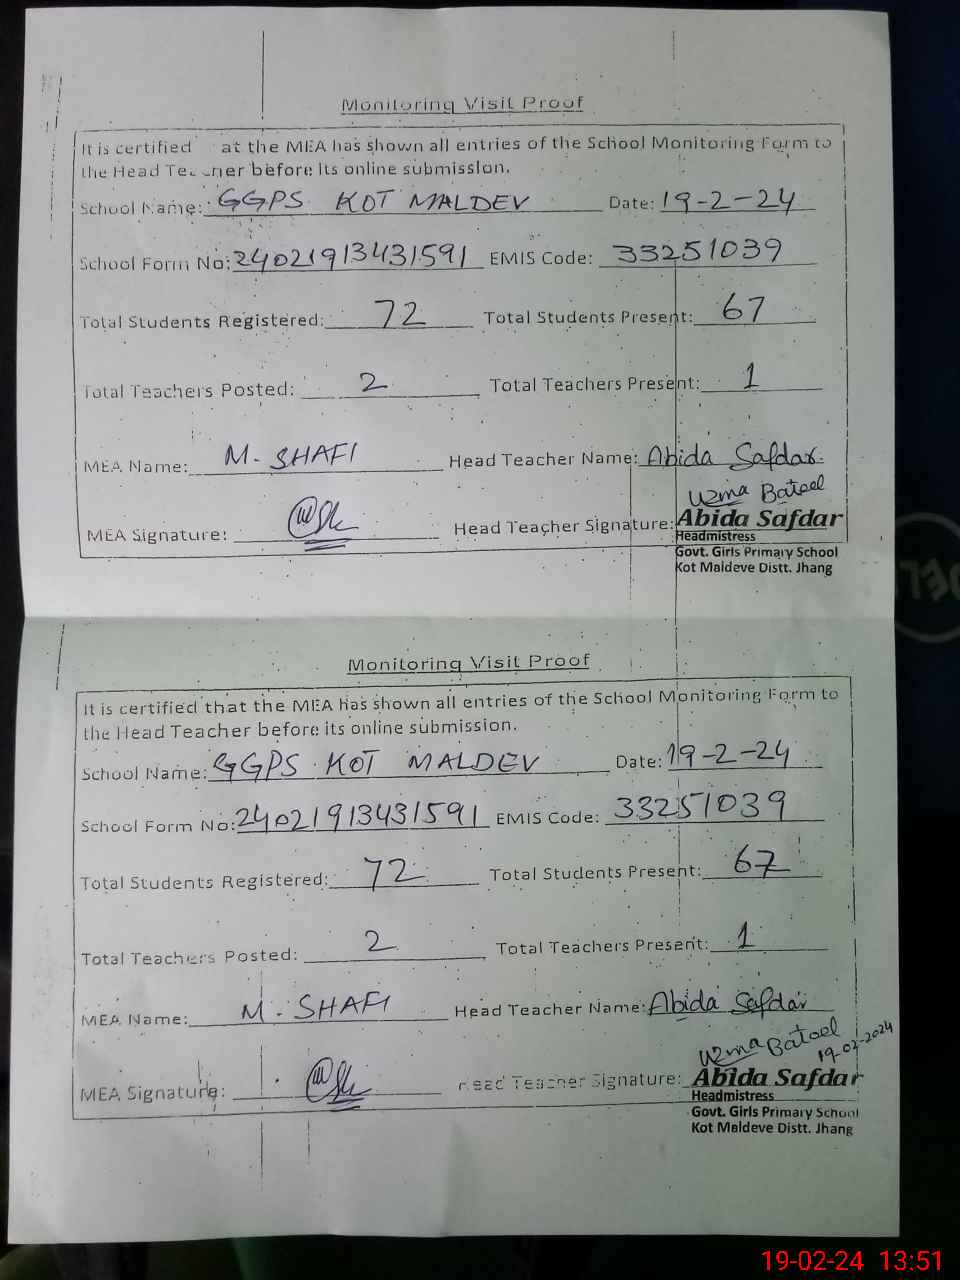 Monitoring Visit Proof
It is certified at the MEA has shown all entries of the School Monitoring Form to
the Head Teacher before its online submission.
School Name: GGPS KOT MALDEV Date: 19-2-24
School Form No: 24021913431591 EMIS Code: 33251039
Total Students Registered: 72 Total Students Present: 67
Total Teachers Posted: 2 Total Teachers Present: 1
MEA Name: M. SHAFI Head Teacher Name: Abida Safdar
Uzma Batool
MEA Signature: Head Teacher Signature: Abida Safdar
Headmistress
Govt. Girls Primary School
Kot Maldeve Distt. Jhang
Monitoring Visit Proof
It is certified that the MEA has shown all entries of the School Monitoring Form to
the Head Teacher before its online submission.
School Name: GGPS KOT MALDEV Date: 19-2-24
School Form No: 24021913431591 EMIS Code: 33251039
Total Students Registered: 72 Total Students Present: 67
Total Teachers Posted: 2 Total Teachers Present: 1
MEA Name: M. SHAFI Head Teacher Name: Abida Safdar
Uzma Batool
19-02-2024
MEA Signature: Head Teacher Signature: Abida Safdar
Headmistress
Govt. Girls Primary School
Kot Maldeve Distt. Jhang
19-02-24 13:51